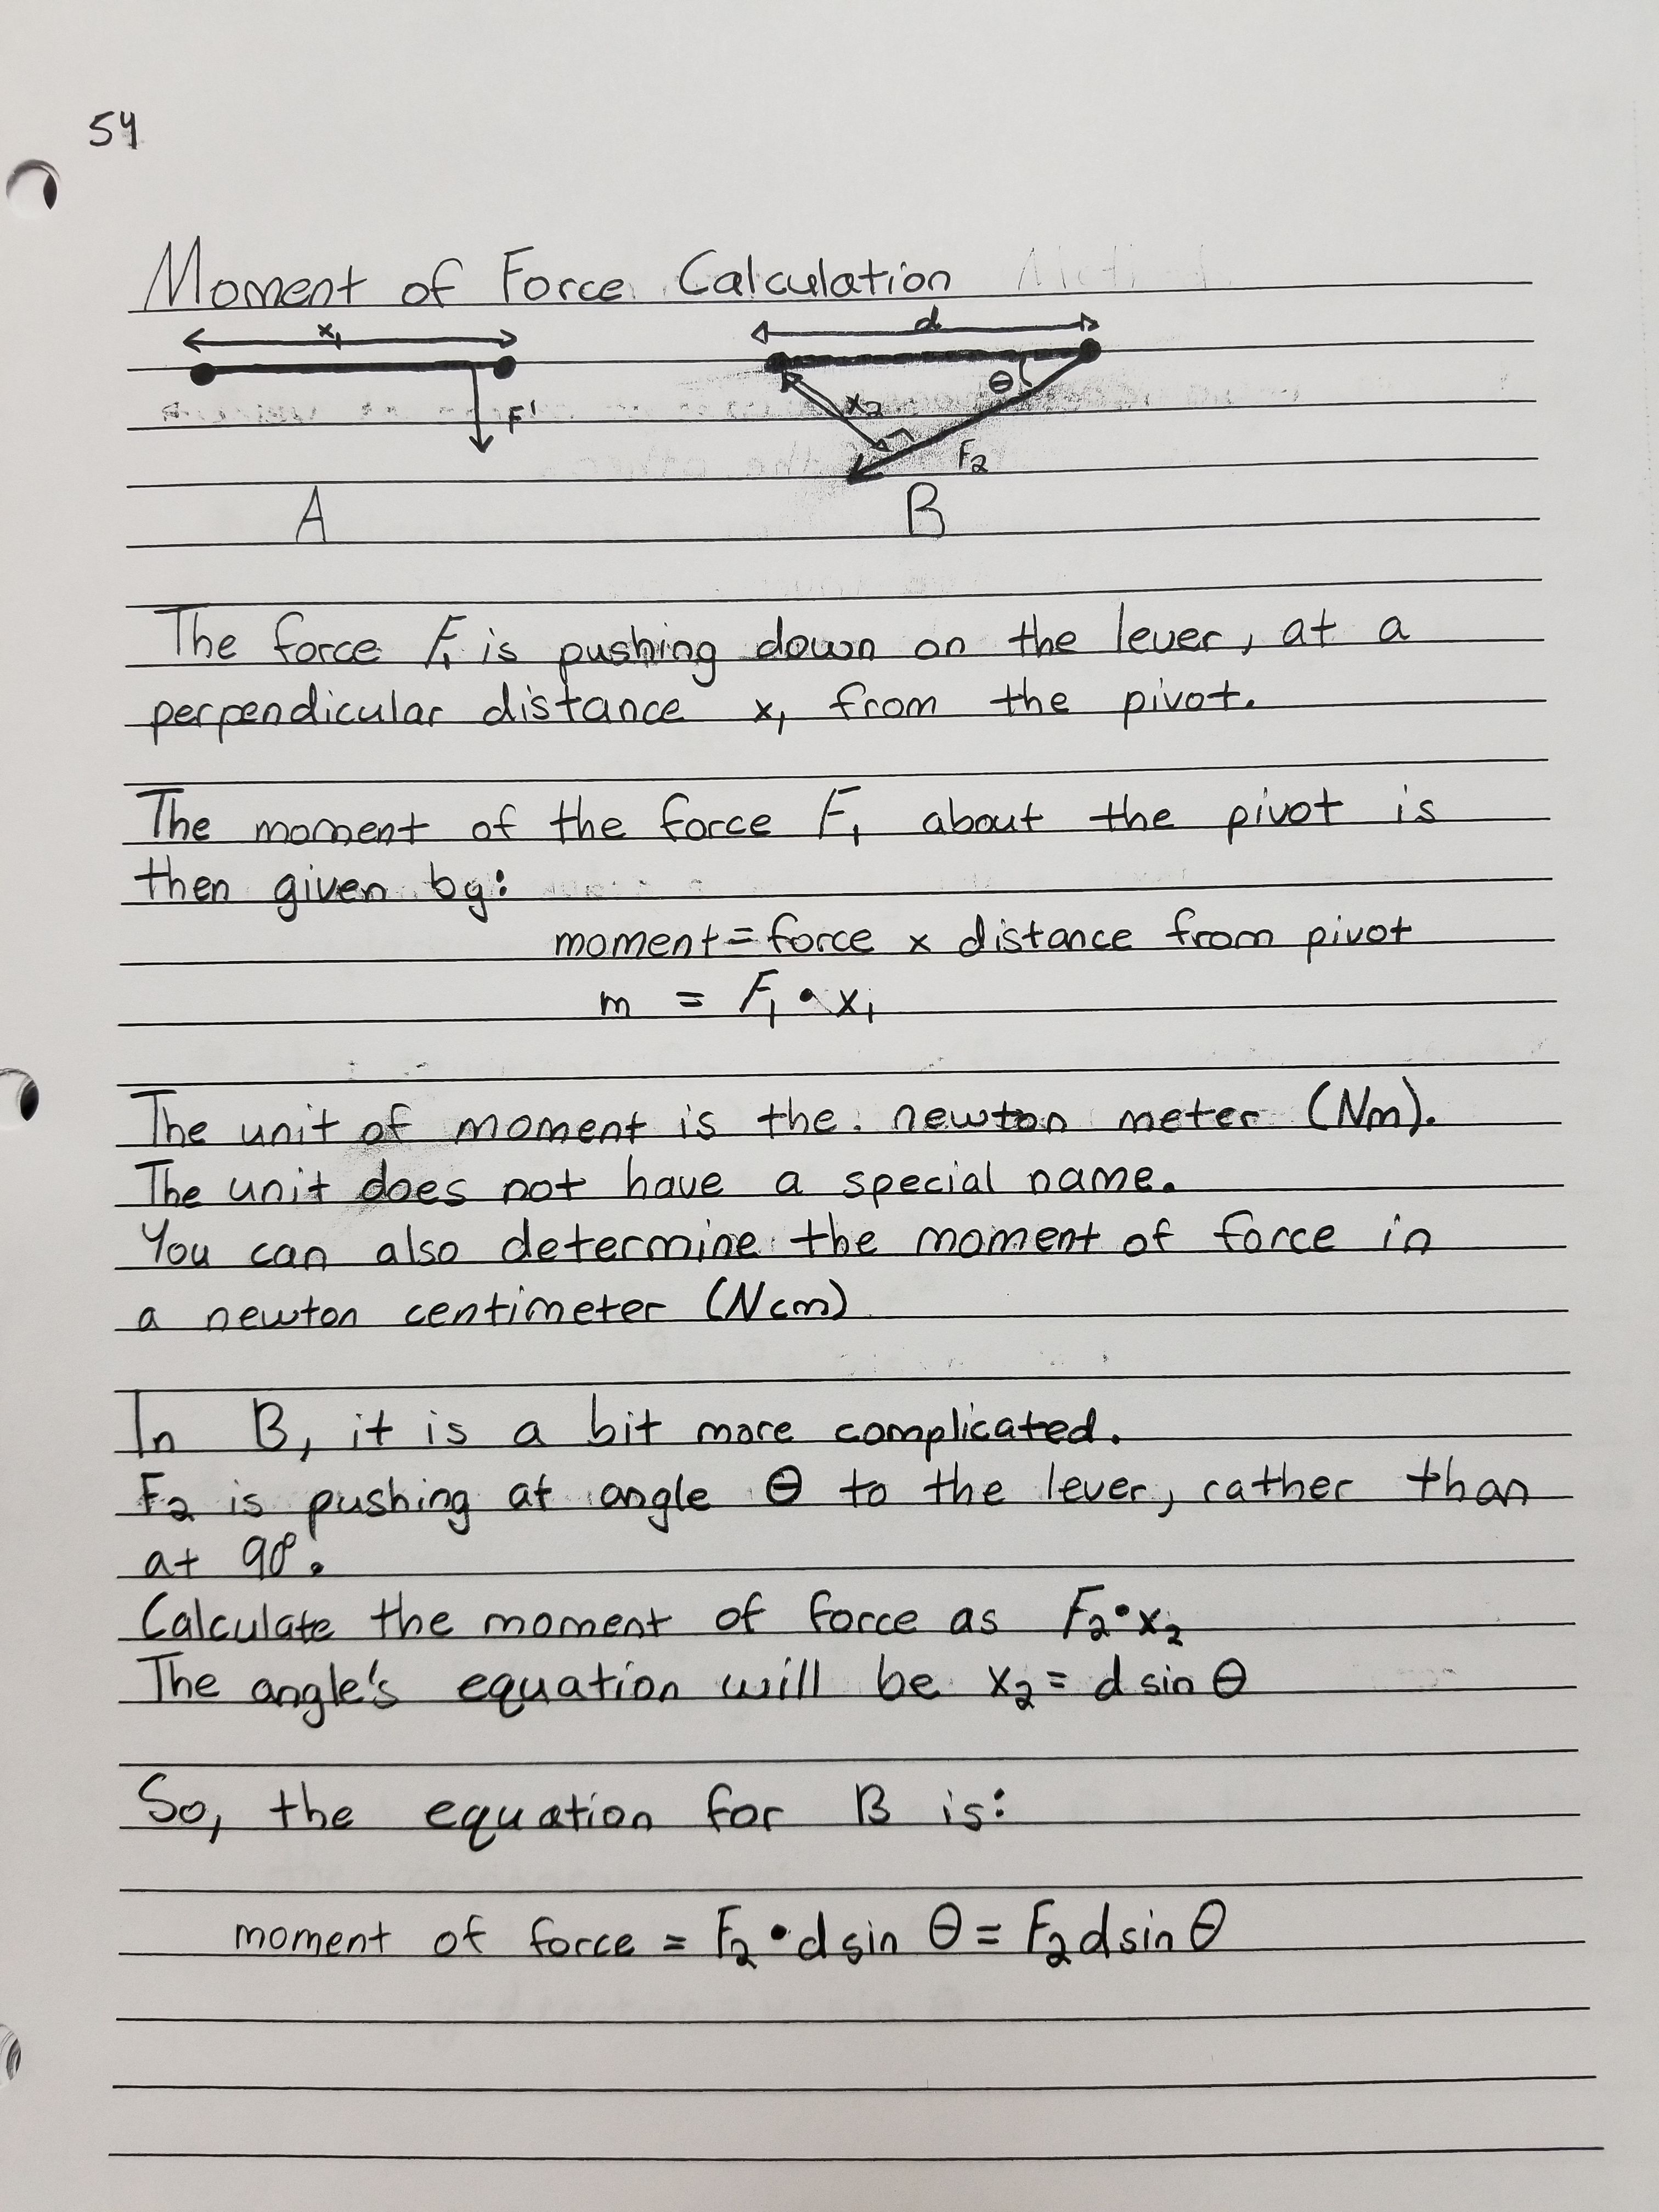 54
Moment of Force Calculation
x₁ d
F' θ x₂ F₂
A B
The force F₁ is pushing down on the lever, at a
perpendicular distance x₁ from the pivot.
The moment of the force F₁ about the pivot is
then given by:
moment = force x distance from pivot
m = F₁ • x₁
The unit of moment is the newton meter (Nm).
The unit does not have a special name.
You can also determine the moment of force in
a newton centimeter (Ncm)
In B, it is a bit more complicated.
F₂ is pushing at angle θ to the lever, rather than
at 90°.
Calculate the moment of force as F₂•x₂
The angle's equation will be x₂ = d sin θ
So, the equation for B is:
moment of force = F₂ • d sin θ = F₂ d sin θ